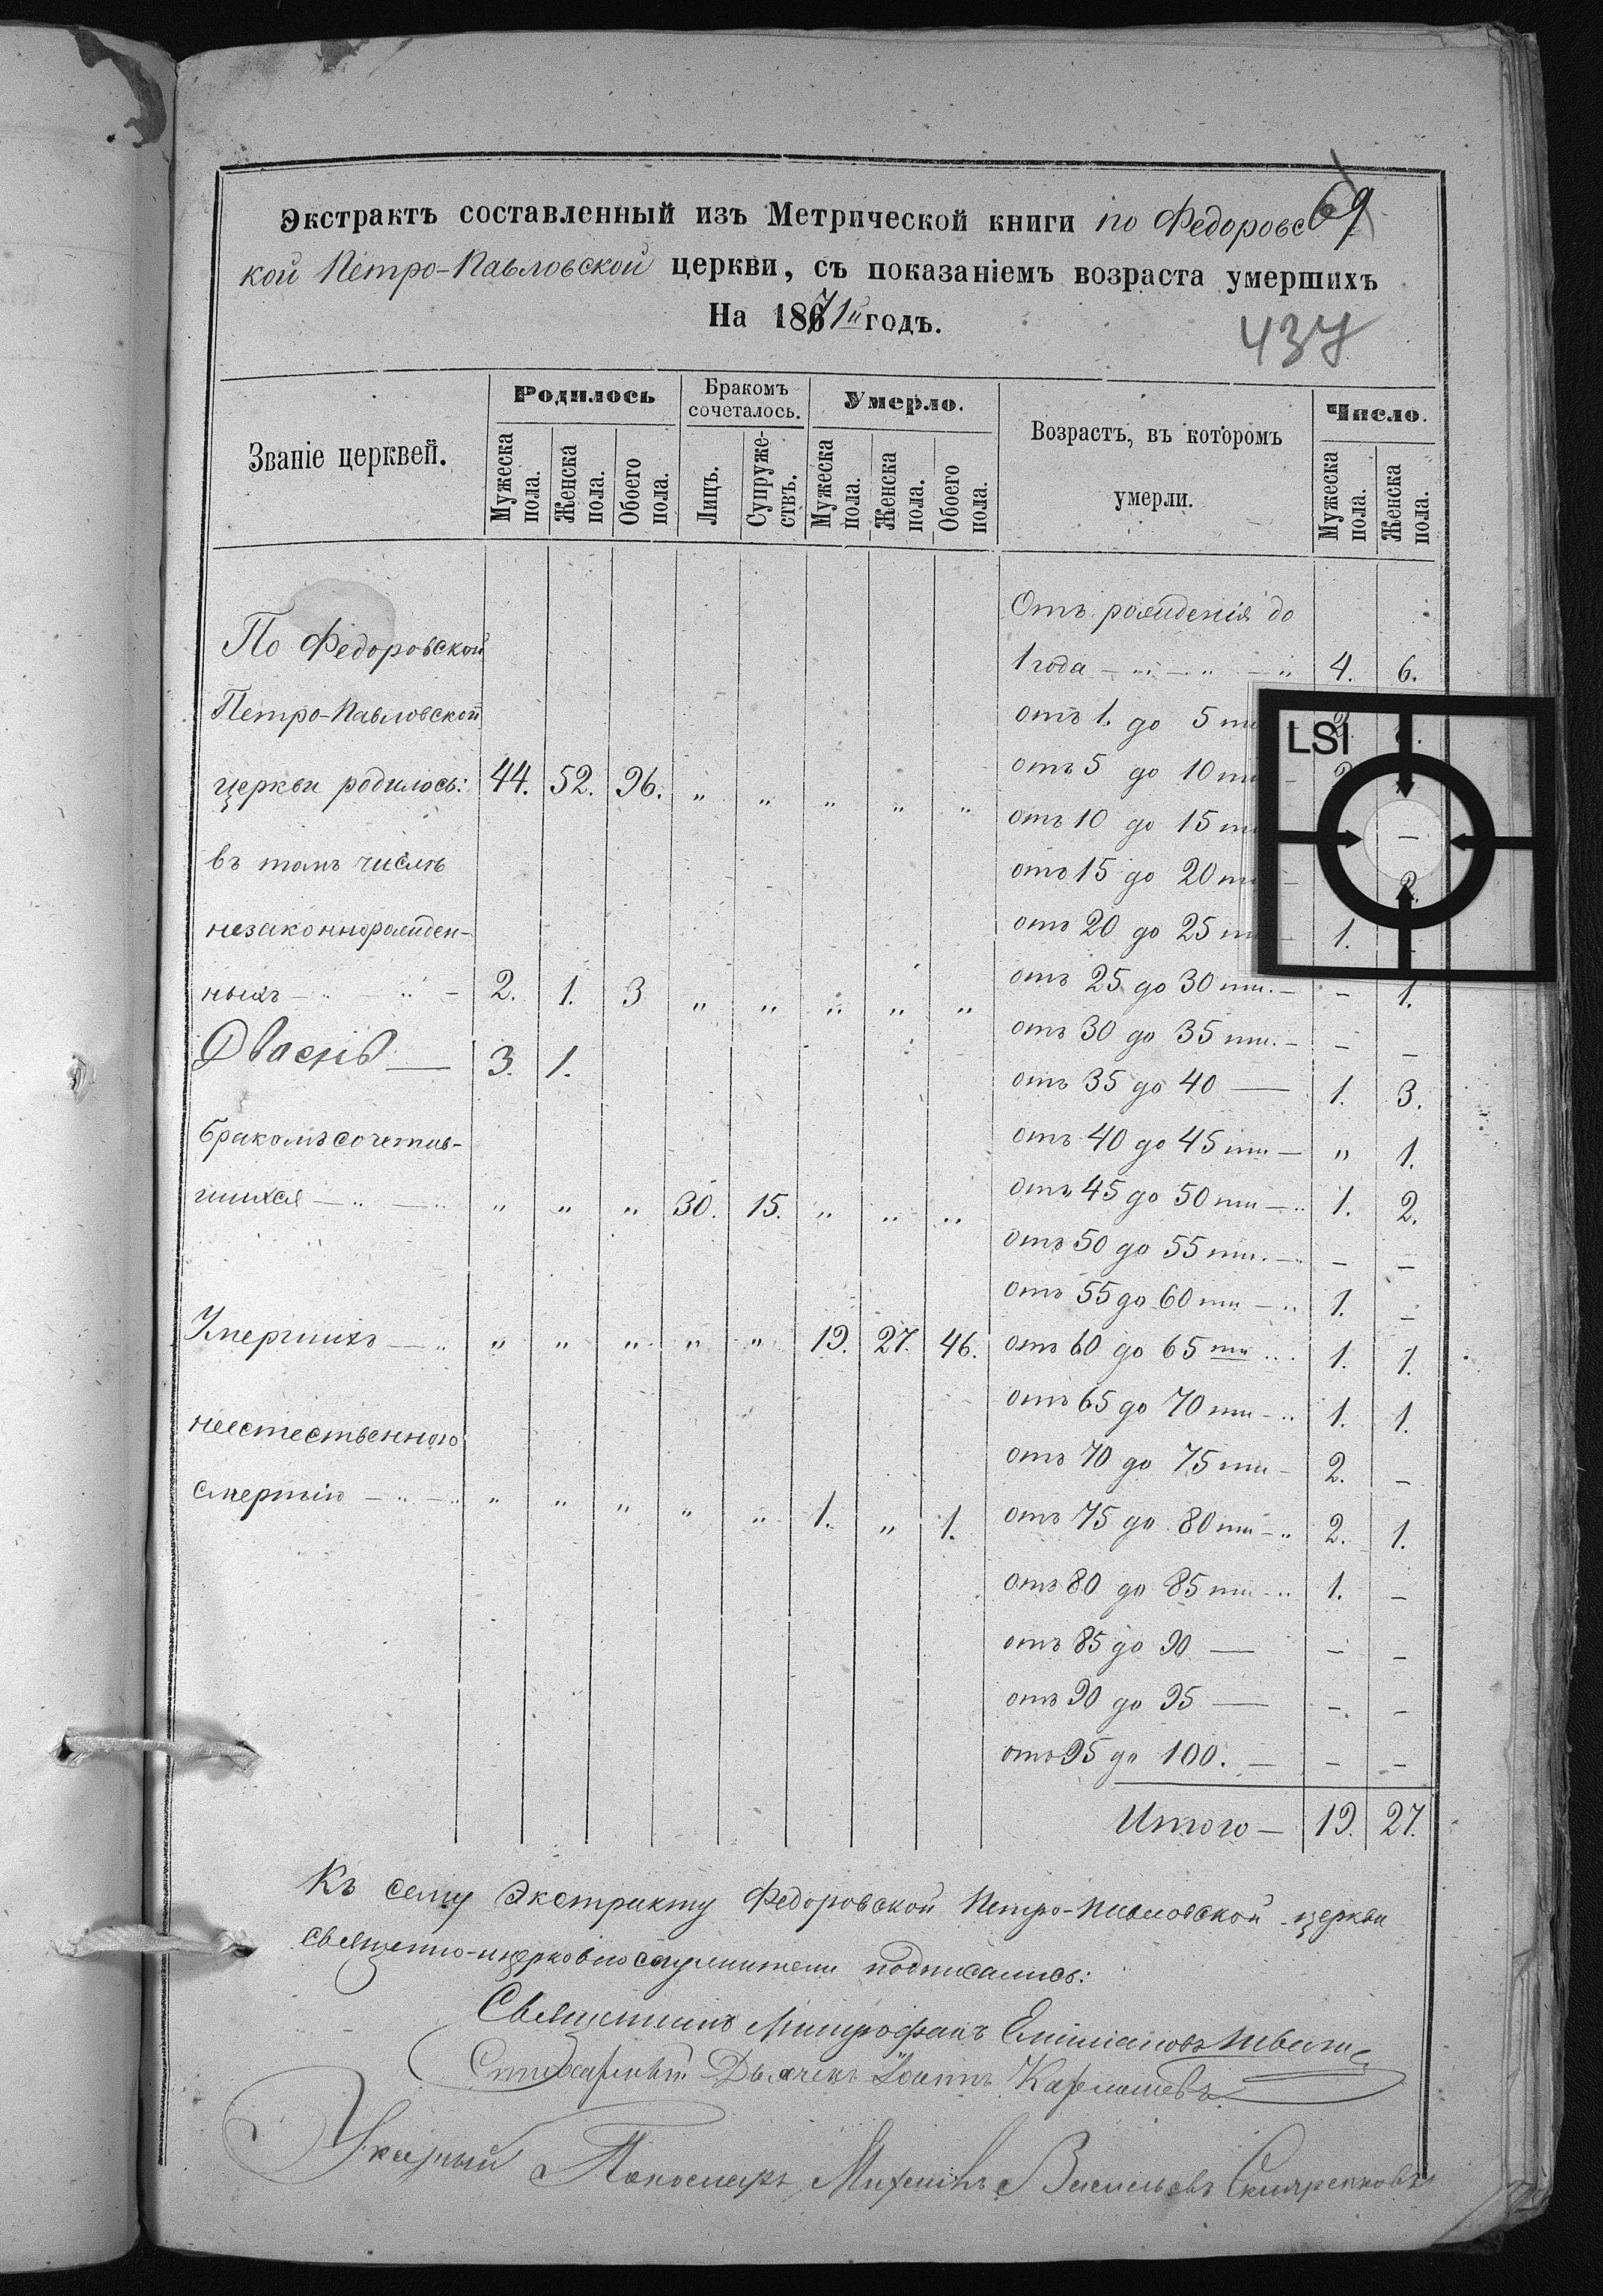 69
Экстрактъ составленный изъ Метрической книги по Федоровс
кой Петро-Павловской церкви, съ показаніемъ возраста умершихъ
На 1871й годъ.
437
Званіе церквей.
Родилось
Бракомъ сочеталось.
Умерло.
Возрастъ, въ которомъ умерли.
Число.
Мужеска пола.
Женска пола.
Обоего пола.
Лицъ.
Супруже-ствъ.
Мужеска пола.
Женска пола.
Обоего пола.
Мужеска пола.
Женска пола.
По Федоровской
Петро-Павловской
церкви родилось: 44. 52. 96. „ „ „ „ „
въ томъ числѣ
незаконнорожден-
ныхъ — „ „ — 2. 1. 3 „ „ „ „ „
Двоенъ — 3. 1.
бракомъ сочетав-
шихся — „ — „ „ „ „ 30. 15. „ „ „
Умершихъ — „ „ „ „ „ „ 19. 27. 46.
неестественною
смертію — „ — „ „ „ „ „ „ 1. „ 1.
Отъ рожденія до
1 года — „ — „ — „ 4. 6.
отъ 1. до 5 ти
отъ 5 до 10 ти —
отъ 10 до 15 ти —
отъ 15 до 20 ти — 2.
отъ 20 до 25 ти — 1. —
отъ 25 до 30 ти. — — 1.
отъ 30 до 35 ти. — — —
отъ 35 до 40 — 1. 3.
отъ 40 до 45 ти — „ 1.
отъ 45 до 50 ти — „ 1. 2.
отъ 50 до 55 ти. — — —
отъ 55 до 60 ти — „ 1. —
отъ 60 до 65 ти ... 1. 1.
отъ 65 до 70 ти — „ 1. 1.
отъ 70 до 75 ти — 2. —
отъ 75 до 80 ти — „ 2. 1.
отъ 80 до 85 ти — „ 1. —
отъ 85 до 90 — — —
отъ 90 до 95 — — —
отъ 95 до 100. — — —
Итого — 19. 27.
LSI
Къ сему Экстракту Федоровской Петро-Павловской церкви
священно-церковнослужители подписались:
Священникъ Митрофанъ
Дьячекъ Іоаннъ
Указный Пономарь Михаилъ Васильевъ